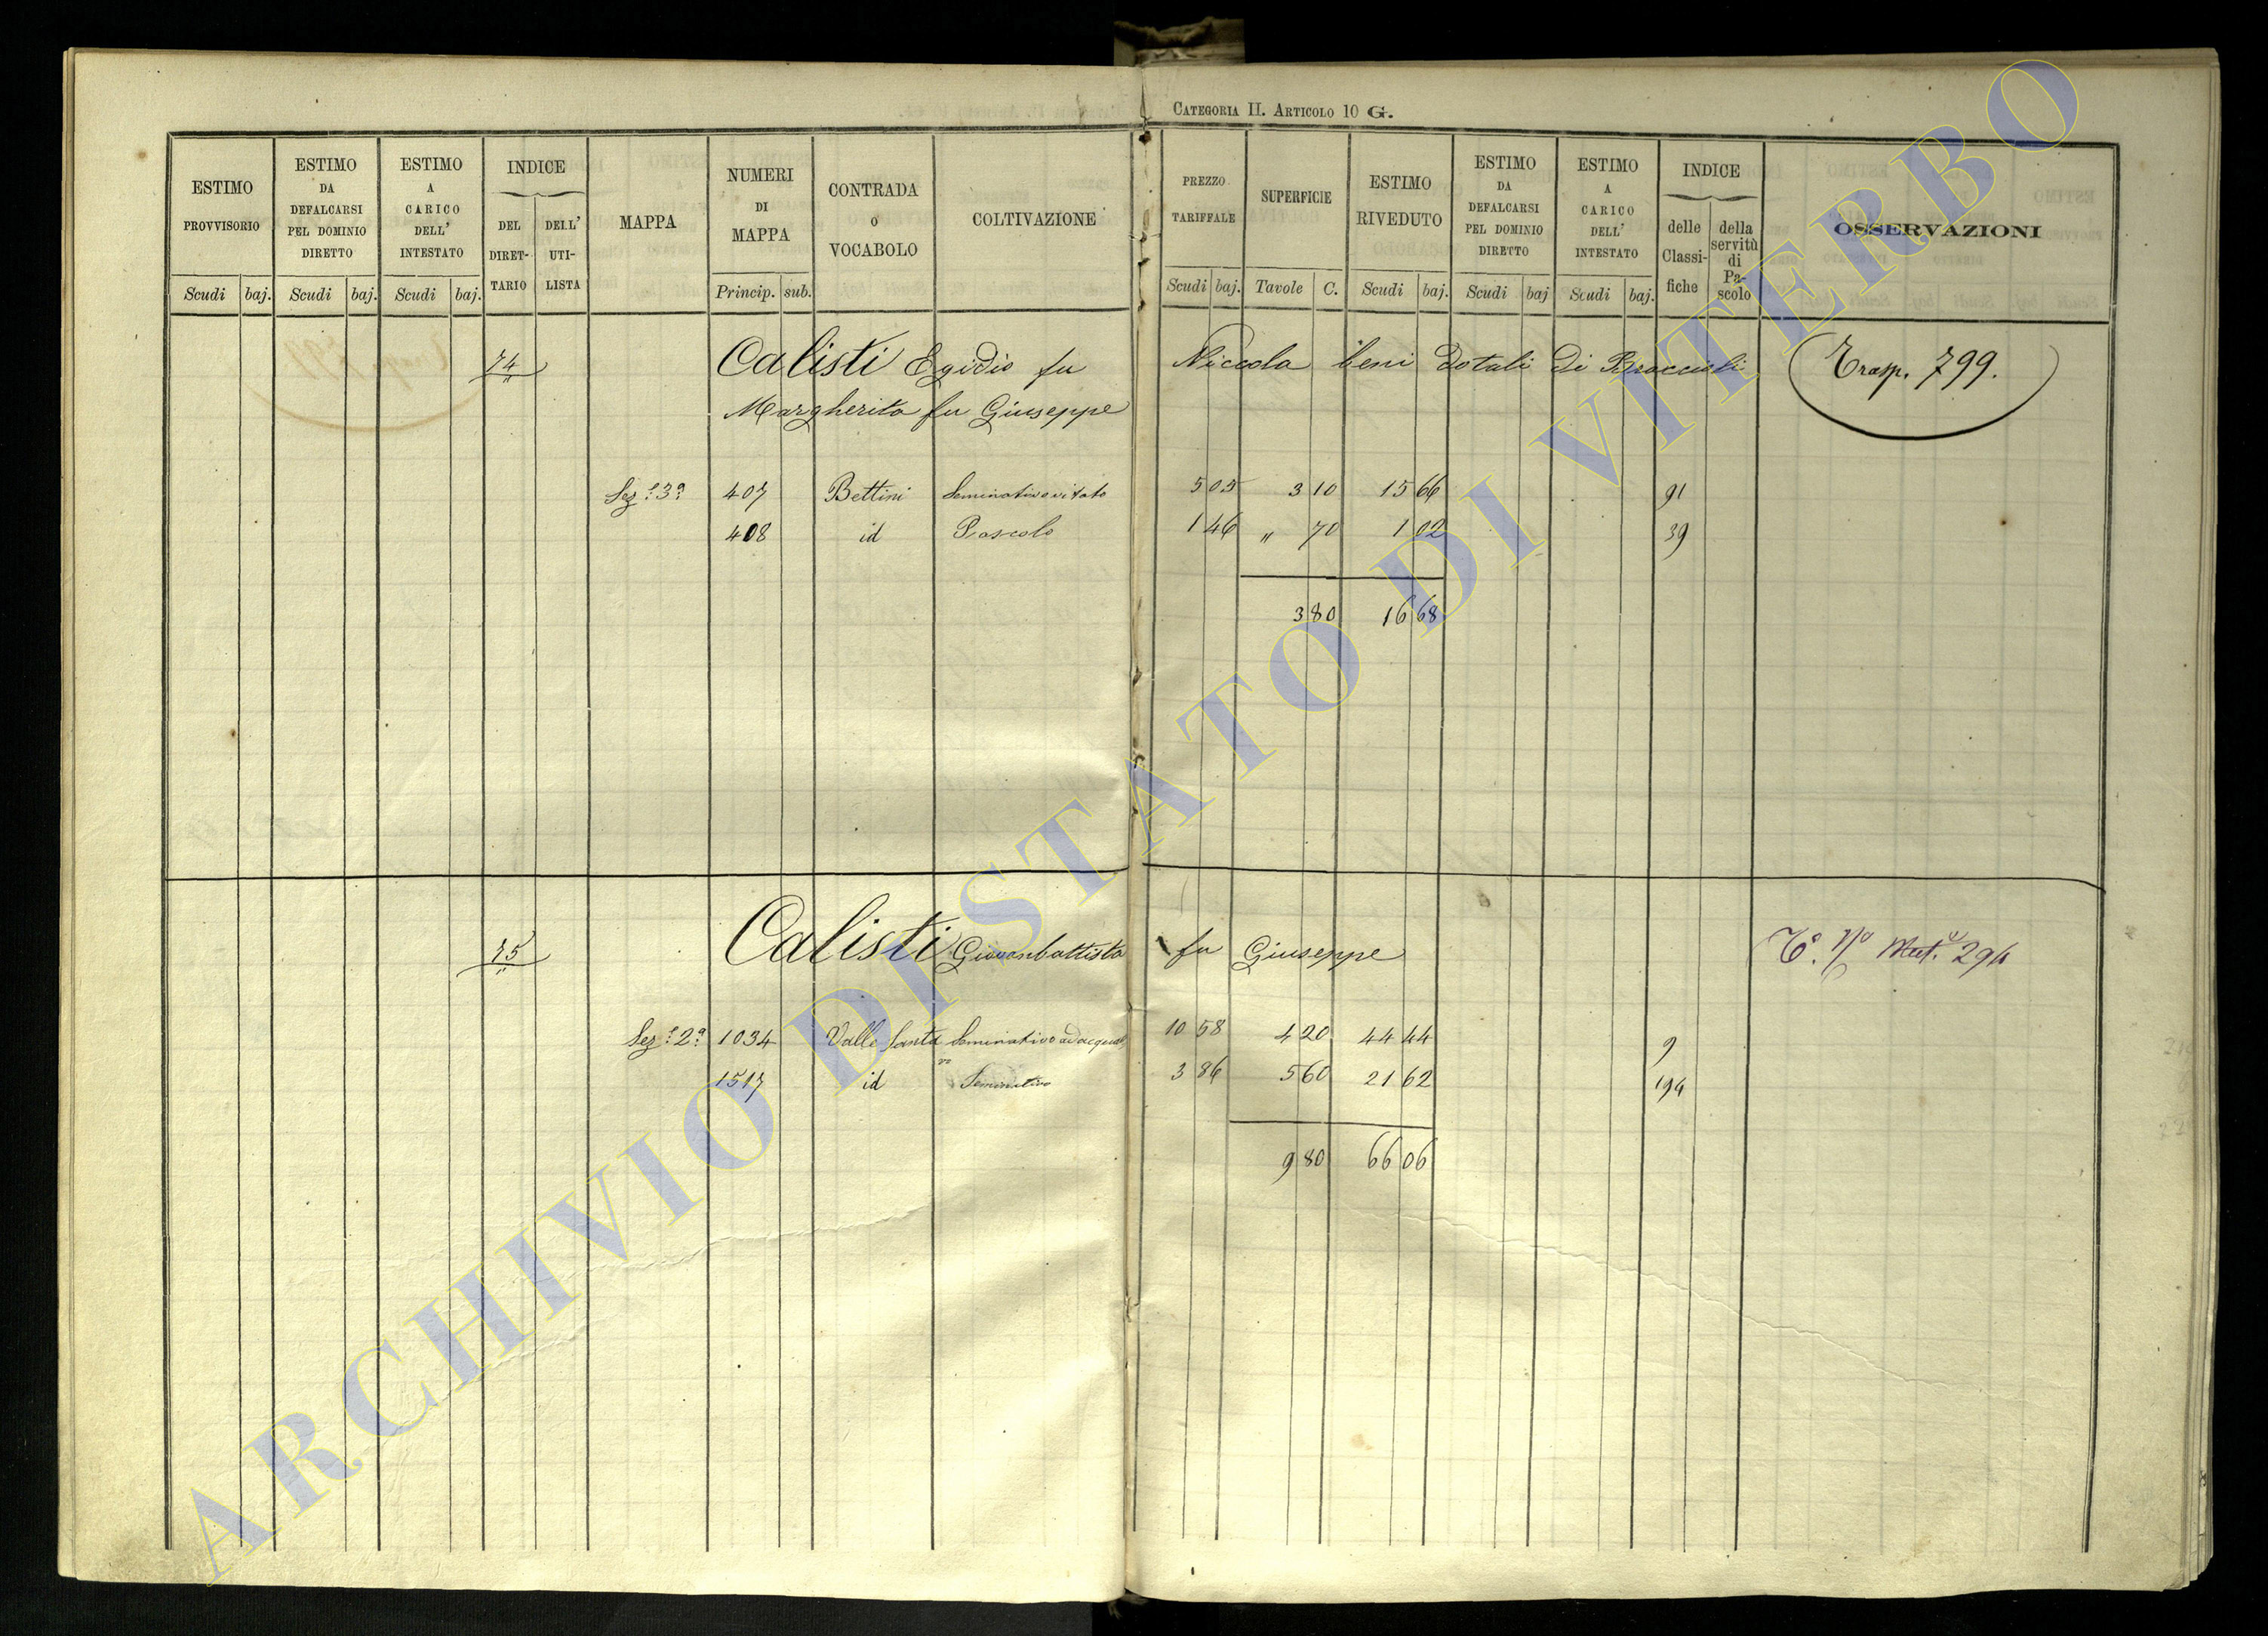 CATEGORIA II. ARTICOLO 10 G.
ESTIMO PROVVISORIO Scudi baj.
ESTIMO DA DEFALCARSI PEL DOMINIO DIRETTO Scudi baj.
ESTIMO A CARICO DELL' INTESTATO Scudi baj.
INDICE DEL DIRET- TARIO DELL' UTI- LISTA
MAPPA
NUMERI DI MAPPA Princip. sub.
CONTRADA O VOCABOLO
COLTIVAZIONE
PREZZO TARIFFALE Scudi baj.
SUPERFICIE Tavole C.
ESTIMO RIVEDUTO Scudi baj.
ESTIMO DA DEFALCARSI PEL DOMINIO DIRETTO Scudi baj
ESTIMO A CARICO DELL' INTESTATO Scudi baj.
INDICE delle Classi- fiche della servitù di Pa- scolo
OSSERVAZIONI
74 Calisti Egidio fu Niccola beni dotali di Braccioli Trasp. 799.
Margherita fu Giuseppe
Sez.e 3a 407 Bettini Seminativo vitato 5 05 3 10 15 66 91
408 id Pascolo 1 46 " 70 1 02 39
3 80 16 68
75 Calisti Giovanbattista fu Giuseppe Mut. 294
Sez.e 2a 1034 Valle Santa Seminativo adacquat 10 58 4 20 44 44 9
1517 id Seminativo 3 86 5 60 21 62 194
9 80 66 06
ARCHIVIO DI STATO DI VITERBO